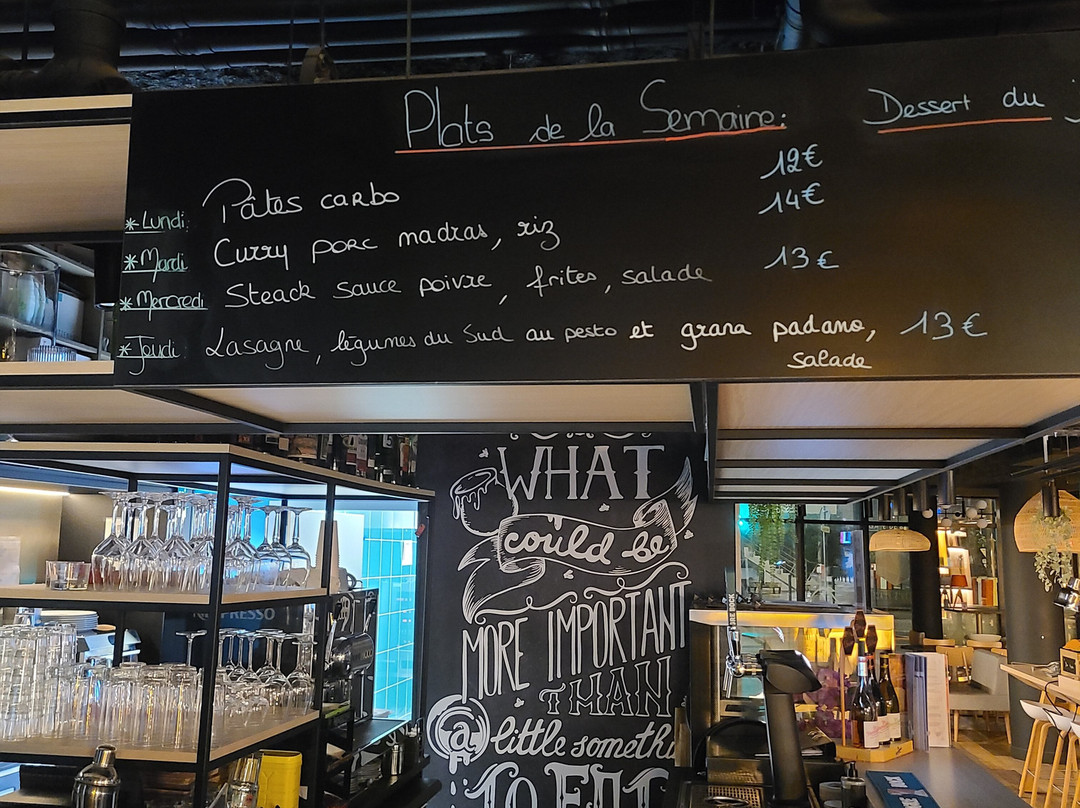 Plats de la Semaine:
Dessert du
*Lundi: Pâtes carbo 12€
*Mardi Curry porc madras, riz 14€
*Mercredi Steack sauce poivre, frites, salade 13€
*Jeudi Lasagne, légumes du Sud au pesto et grana padano, 13€
salade
WHAT
could be
MORE IMPORTANT
THAN
a little someth
TO EAT